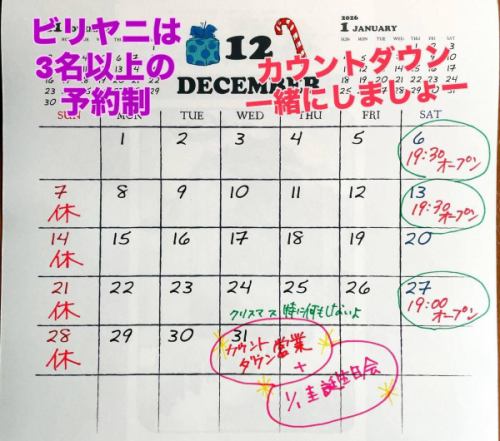 ビリヤニは
3名以上の
予約制
カウントダウン
一緒にしましょー
12
DECEMBER
2026
1 JANUARY
SUN MON TUE WED THU FRI SAT
1 2 3 4 5 6
19:30
オープン
7 8 9 10 11 12 13
休
19:30
オープン
14 15 16 17 18 19 20
休
21 22 23 24 25 26 27
休
クリスマス 特に何もしないよ
19:00
オープン
28 29 30 31
休
カウント
ダウン営業
+
1/1 圭誕生日会